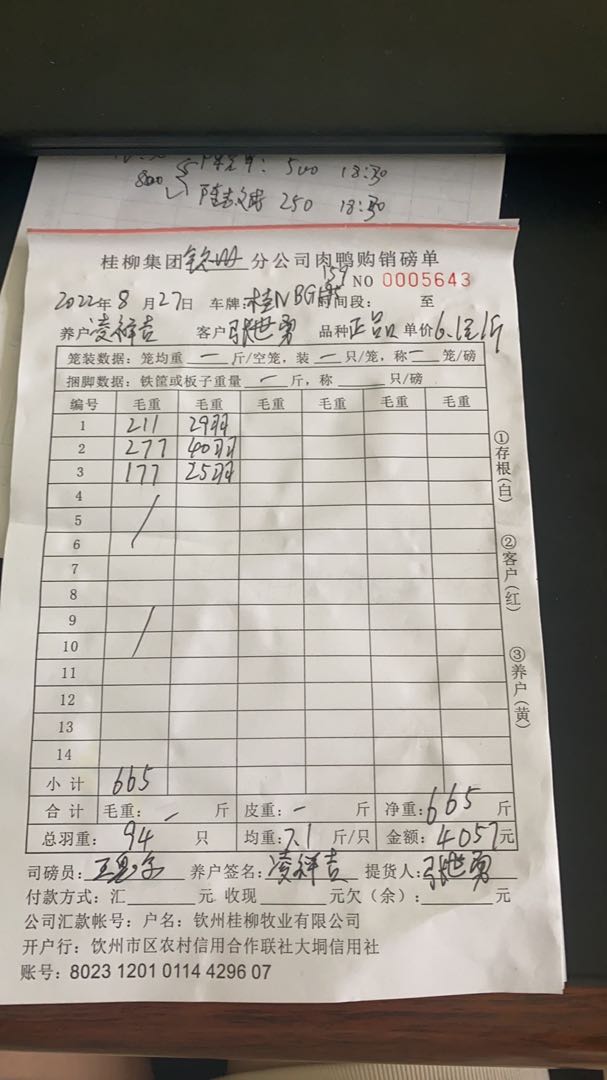 500 18:30
800 250 18:30
桂柳集团钦州分公司肉鸭购销磅单
NO 0005643
2022年8月27日 车牌:桂NBG159 时间段: 至
养户凌祥吉 客户张世勇 品种正品 单价6.1元/斤
笼装数据:笼均重 一 斤/空笼,装 一 只/笼,称 一 笼/磅
捆脚数据:铁筐或板子重量 一 斤,称 只/磅
编号 毛重 毛重 毛重 毛重 毛重 毛重
1 211 29羽
2 277 40羽
3 177 25羽
4
5
6
7
8
9
10
11
12
13
14
小计 665
合计 毛重: 一 斤 皮重: 一 斤 净重:665斤
总羽重: 94 只 均重:7.1 斤/只 金额:4057元
司磅员: 养户签名:凌祥吉 提货人:张世勇
付款方式:汇 元 收现 元欠(余): 元
公司汇款帐号:户名:钦州桂柳牧业有限公司
开户行:钦州市区农村信用合作联社大垌信用社
账号:8023 1201 0114 4296 07
①存根(白)
②客户(红)
③养户(黄)